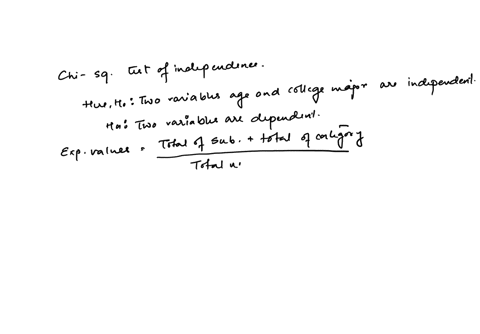 Chi- sq. test of independence.
Here, H₀: Two variables age and college major are independent.
Ha: Two variables are dependent.
Exp. values = Total of sub. + total of category
Total n.